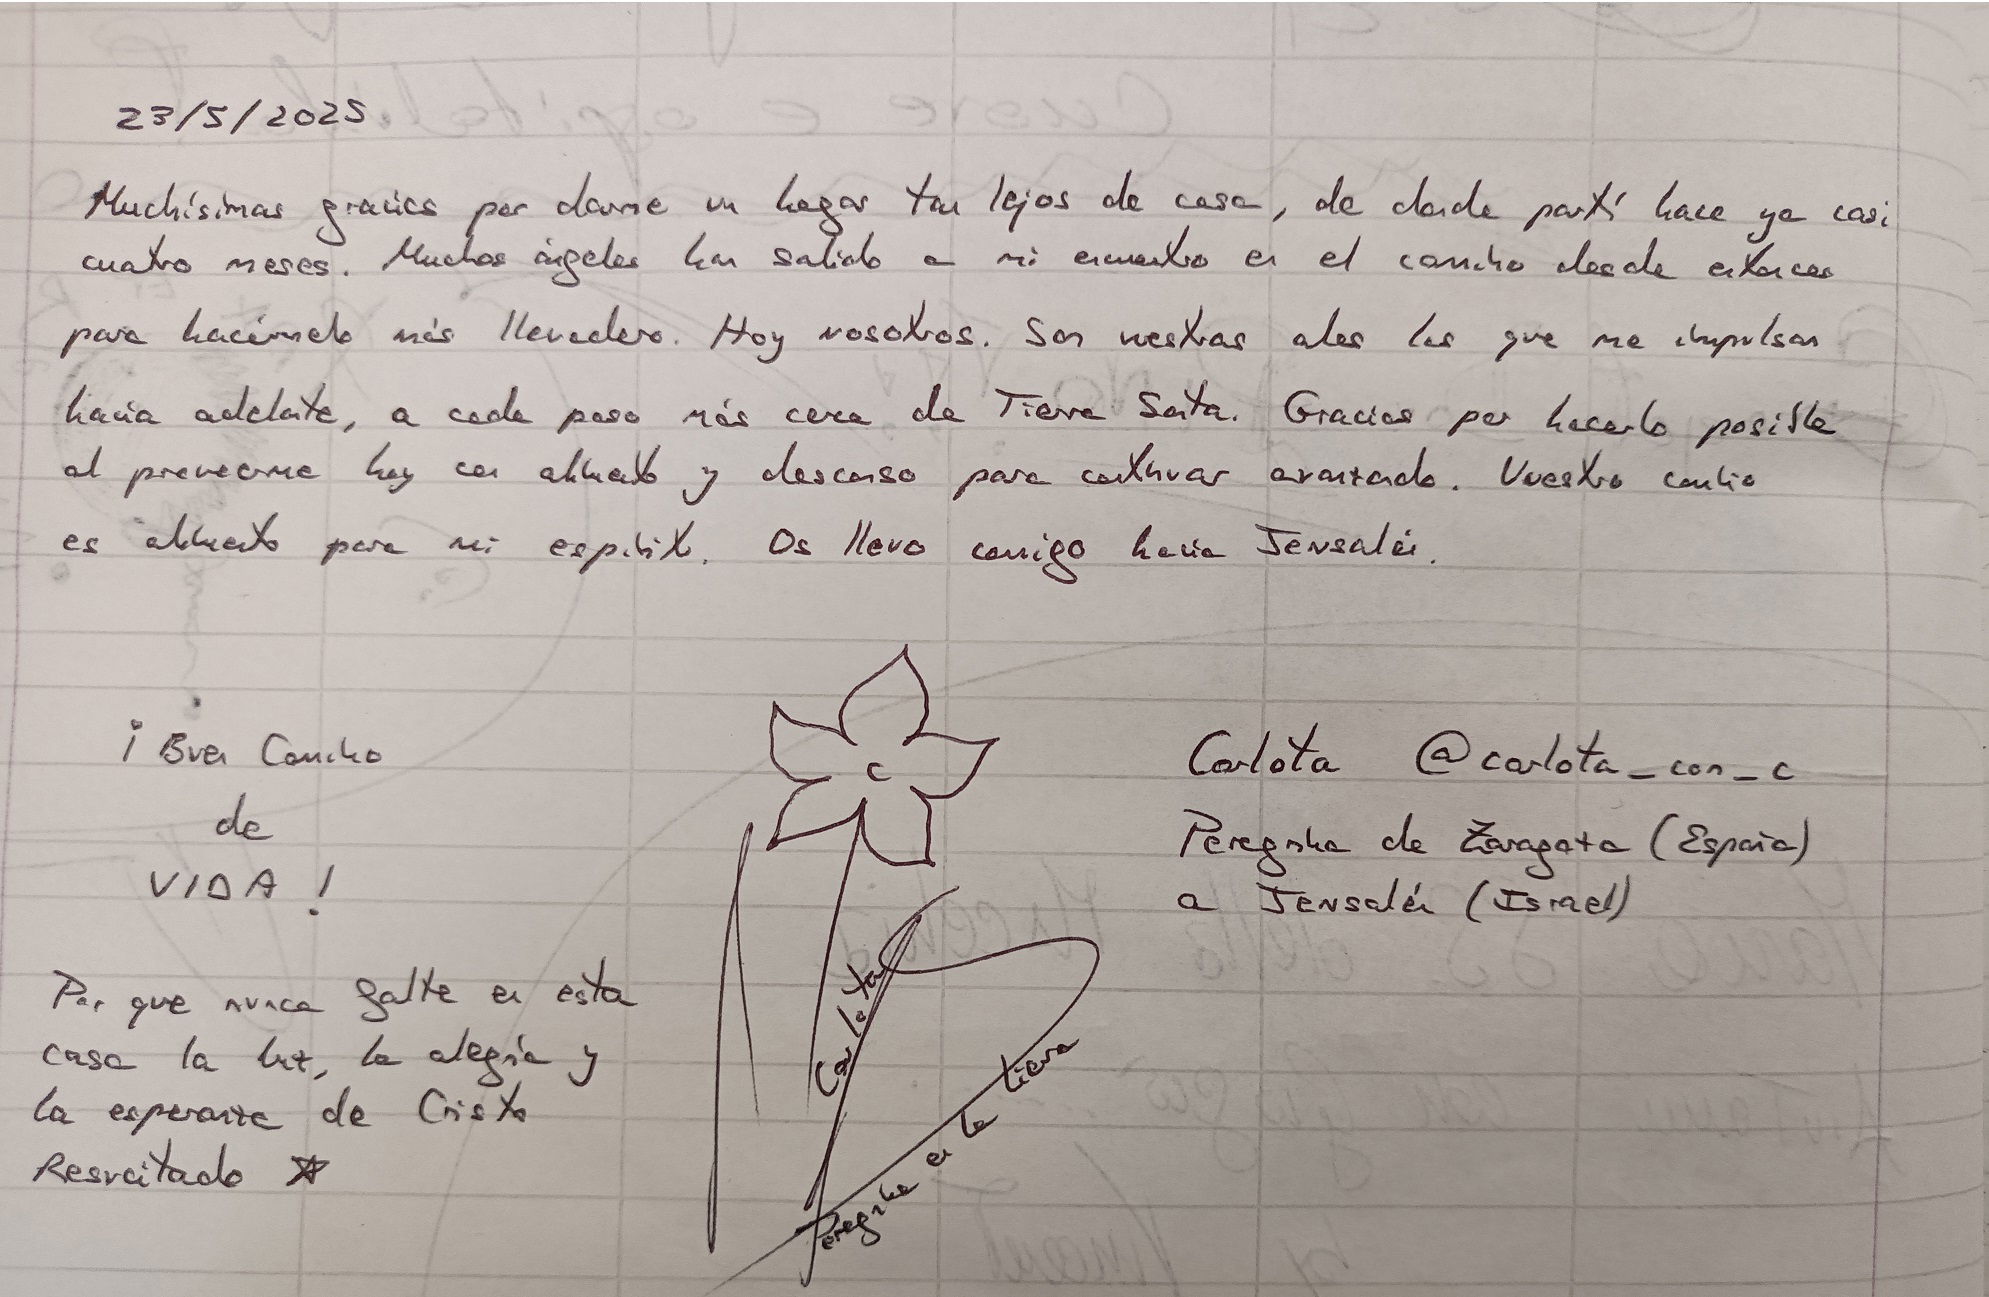 23/5/2025
Muchísimas gracias por darme un hogar tan lejos de casa, de donde partí hace ya casi
cuatro meses. Muchos ángeles han salido a mi encuentro en el camino desde entonces
para hacérmelo más llevadero. Hoy vosotros. Son vuestras alas las que me impulsan
hacia adelante, a cada paso más cerca de Tierra Santa. Gracias por hacerlo posible
al proveerme hoy con alimento y descanso para continuar avanzando. Vuestro cariño
es alimento para mi espíritu. Os llevo conmigo hacia Jerusalén.
¡Buen Camino
de
VIDA!
Por que nunca falte en esta
casa la luz, la alegría y
la esperanza de Cristo
Resucitado
C
Carlota
Peregrina en la tierra
Carlota @carlota_con_c
Peregrina de Zaragoza (España)
a Jerusalén (Israel)